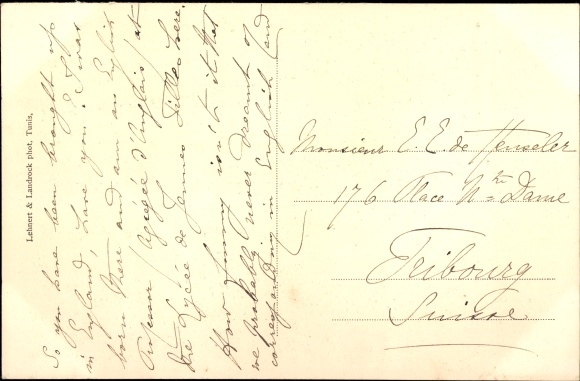 So you have been brought up
in England, have you? I was
born there and am an English
Professor (Agrégée d'Anglais) at
the Lycée de Jeunes Filles here.
How funny isn't it that
we probably never dreamt of
corresponding in English (and
Lehnert & Landrock phot, Tunis,
Monsieur E. E. de Henseler
176 Place Nre Dame
Fribourg
Suisse